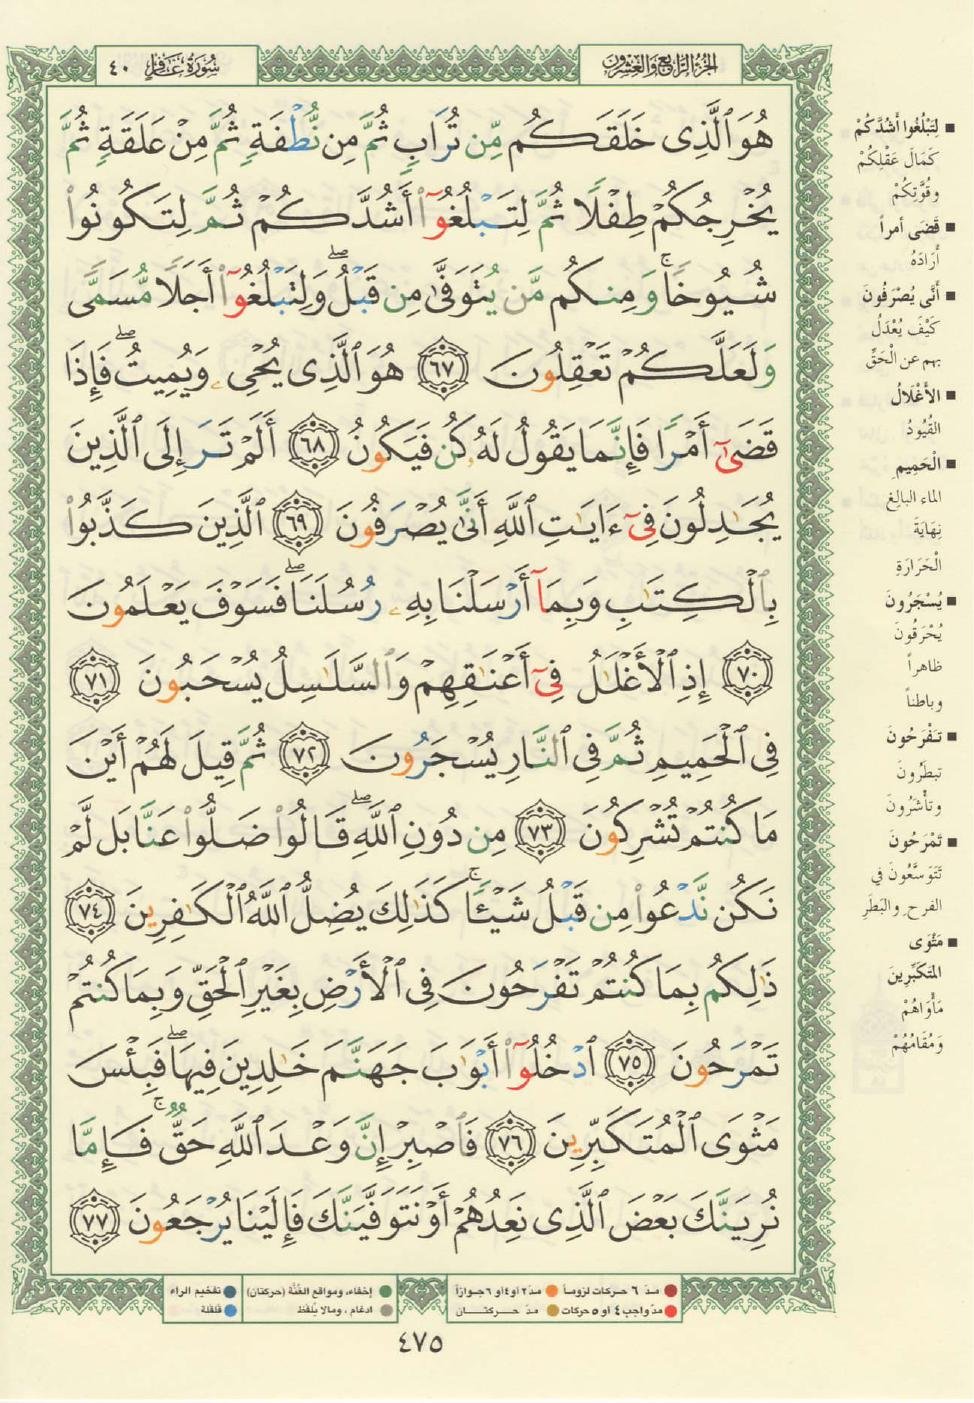 الجزء الرابع والعشرون
سورة غافر ٤٠
هُوَ ٱلَّذِى خَلَقَكُم مِّن تُرَابٍ ثُمَّ مِن نُّطْفَةٍ ثُمَّ مِنْ عَلَقَةٍ ثُمَّ
يُخْرِجُكُمْ طِفْلًا ثُمَّ لِتَبْلُغُوٓا۟ أَشُدَّكُمْ ثُمَّ لِتَكُونُوا۟
شُيُوخًا ۚ وَمِنكُم مَّن يُتَوَفَّىٰ مِن قَبْلُ ۖ وَلِتَبْلُغُوٓا۟ أَجَلًا مُّسَمًّى
وَلَعَلَّكُمْ تَعْقِلُونَ ٦٧ هُوَ ٱلَّذِى يُحْىِۦ وَيُمِيتُ ۖ فَإِذَا
قَضَىٰٓ أَمْرًا فَإِنَّمَا يَقُولُ لَهُۥ كُن فَيَكُونُ ٦٨ أَلَمْ تَرَ إِلَى ٱلَّذِينَ
يُجَٰدِلُونَ فِىٓ ءَايَٰتِ ٱللَّهِ أَنَّىٰ يُصْرَفُونَ ٦٩ ٱلَّذِينَ كَذَّبُوا۟
بِٱلْكِتَٰبِ وَبِمَآ أَرْسَلْنَا بِهِۦ رُسُلَنَا ۖ فَسَوْفَ يَعْلَمُونَ
٧٠ إِذِ ٱلْأَغْلَٰلُ فِىٓ أَعْنَٰقِهِمْ وَٱلسَّلَٰسِلُ يُسْحَبُونَ ٧١
فِى ٱلْحَمِيمِ ثُمَّ فِى ٱلنَّارِ يُسْجَرُونَ ٧٢ ثُمَّ قِيلَ لَهُمْ أَيْنَ
مَا كُنتُمْ تُشْرِكُونَ ٧٣ مِن دُونِ ٱللَّهِ ۖ قَالُوا۟ ضَلُّوا۟ عَنَّا بَل لَّمْ
نَكُن نَّدْعُوا۟ مِن قَبْلُ شَيْـًٔا ۚ كَذَٰلِكَ يُضِلُّ ٱللَّهُ ٱلْكَٰفِرِينَ ٧٤
ذَٰلِكُم بِمَا كُنتُمْ تَفْرَحُونَ فِى ٱلْأَرْضِ بِغَيْرِ ٱلْحَقِّ وَبِمَا كُنتُمْ
تَمْرَحُونَ ٧٥ ٱدْخُلُوٓا۟ أَبْوَٰبَ جَهَنَّمَ خَٰلِدِينَ فِيهَا ۖ فَبِئْسَ
مَثْوَى ٱلْمُتَكَبِّرِينَ ٧٦ فَٱصْبِرْ إِنَّ وَعْدَ ٱللَّهِ حَقٌّ ۚ فَإِمَّا
نُرِيَنَّكَ بَعْضَ ٱلَّذِى نَعِدُهُمْ أَوْ نَتَوَفَّيَنَّكَ فَإِلَيْنَا يُرْجَعُونَ ٧٧
■ لِتَبْلُغُوا أَشُدَّكُمْ
كَمَالَ عَقْلِكُمْ
وقُوَّتِكُمْ
■ قَضى أمراً
أَرَادَهُ
■ أَنَّى يُصْرَفُونَ
كَيْفَ يُعْدَلُ
بهم عن الحَقِّ
■ الأَغْلَالُ
القُيُودُ
■ الْحَمِيمِ
الماء البالِغِ
نِهَايَةَ
الْحَرَارَةِ
■ يُسْجَرُونَ
يُحْرَقُونَ
ظاهراً
وباطناً
■ تَفْرَحُونَ
تبطَرُونَ
وتأْشَرُونَ
■ تَمْرَحُونَ
تَتَوسَّعُونَ في
الفرحِ والبَطَرِ
■ مَثْوَى
المتكَبِّرِينَ
مَأْوَاهُمْ
وَمُقَامُهُمْ
مدّ ٦ حركات لزوماً مدّ ٢ أو ٤ أو ٦ جوازاً
مدّ واجب ٤ أو ٥ حركات مدّ حركتان
إخفاء، ومواقع الغُنَّة (حركتان) تفخيم الراء
ادغام، ومالا يُلفَظ قلقلة
٤٧٥